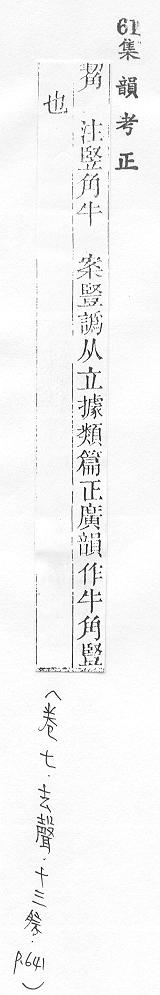 61集韻考正
觢 注竪角牛 案竪譌从立據類篇正廣韻作牛角豎
也
(卷七.去聲.十三祭.p.641)